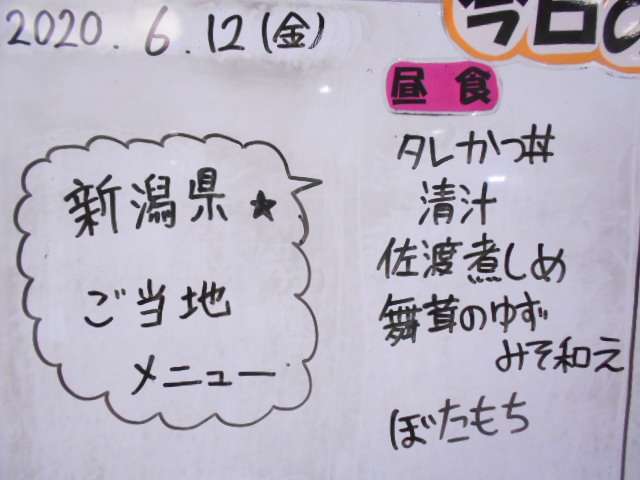 2020.6.12(金)
今日の
新潟県★
ご当地
メニュー
昼食
タレかつ丼
清汁
佐渡煮しめ
舞茸のゆず
みそ和え
ぼたもち